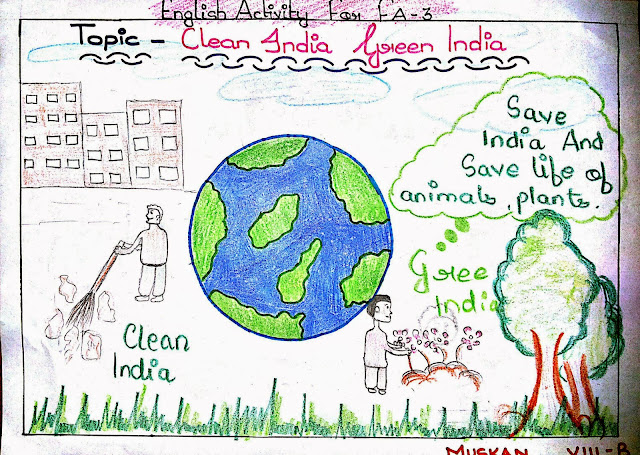 English Activity For FA-3
Topic - Clean India Green India
Save
India And
Save life of
animals, plants.
Gree
India
Clean
India
MUSKAN VIII-B